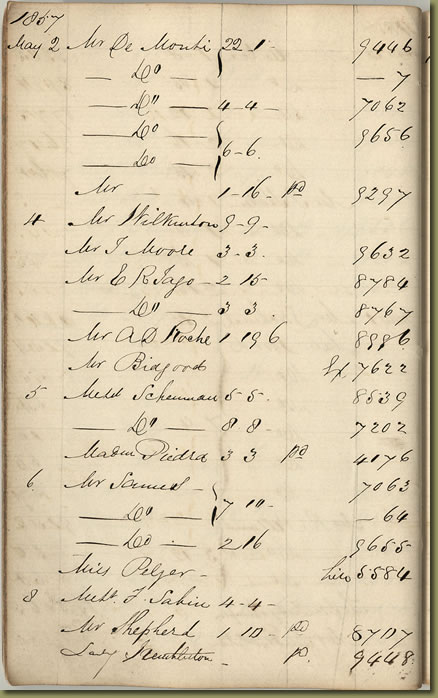 1857
May 2 Mr De Monti 22 1 - 9446
— Do — — 7
— Do — 4 - 4 - 7062
— Do — 9656
— Do — 6 - 6.
Mr — 1 - 16 - pd 9297
4 Mr Wilkinson 9 - 9 -
Mr J Moore 3 - 3. 9632
Mr E R Jago - 2 15 8784
— Do — 3 3 8767
Mr A D Roche 1 19 6 8996
Mr Bidgood Ex 7622
5 Schenman 5 5. 8539
— Do — 8 . 8 . 7202
Madm Piedra 3 3 pd 4176
6 Mr Samuel - 7063
— Do — 7 10 - — 64
— Do — 2 16 9655
Miss Pelzer - 5584
8 F. Sabin 4 - 4 -
Mr Shepherd 1 . 10 - pd 8707
Lady - p. 9448